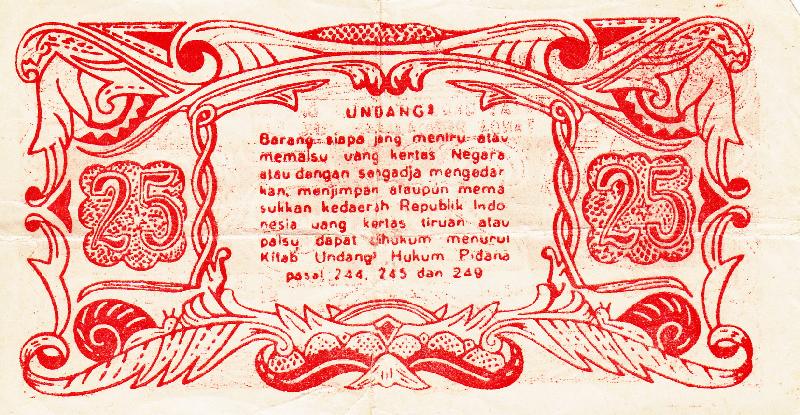 UNDANG²
Barang siapa jang meniru atau
memalsu uang kertas Negara
atau dangan sengadja mengedar
kan, menjimpan ataupun mema
sukkan kedaerah Republik Indo
nesia uang kertas tiruan atau
palsu dapat dihukum menurut
Kitab Undang² Hukum Pidana
pasal 244, 245 dan 249
25
25